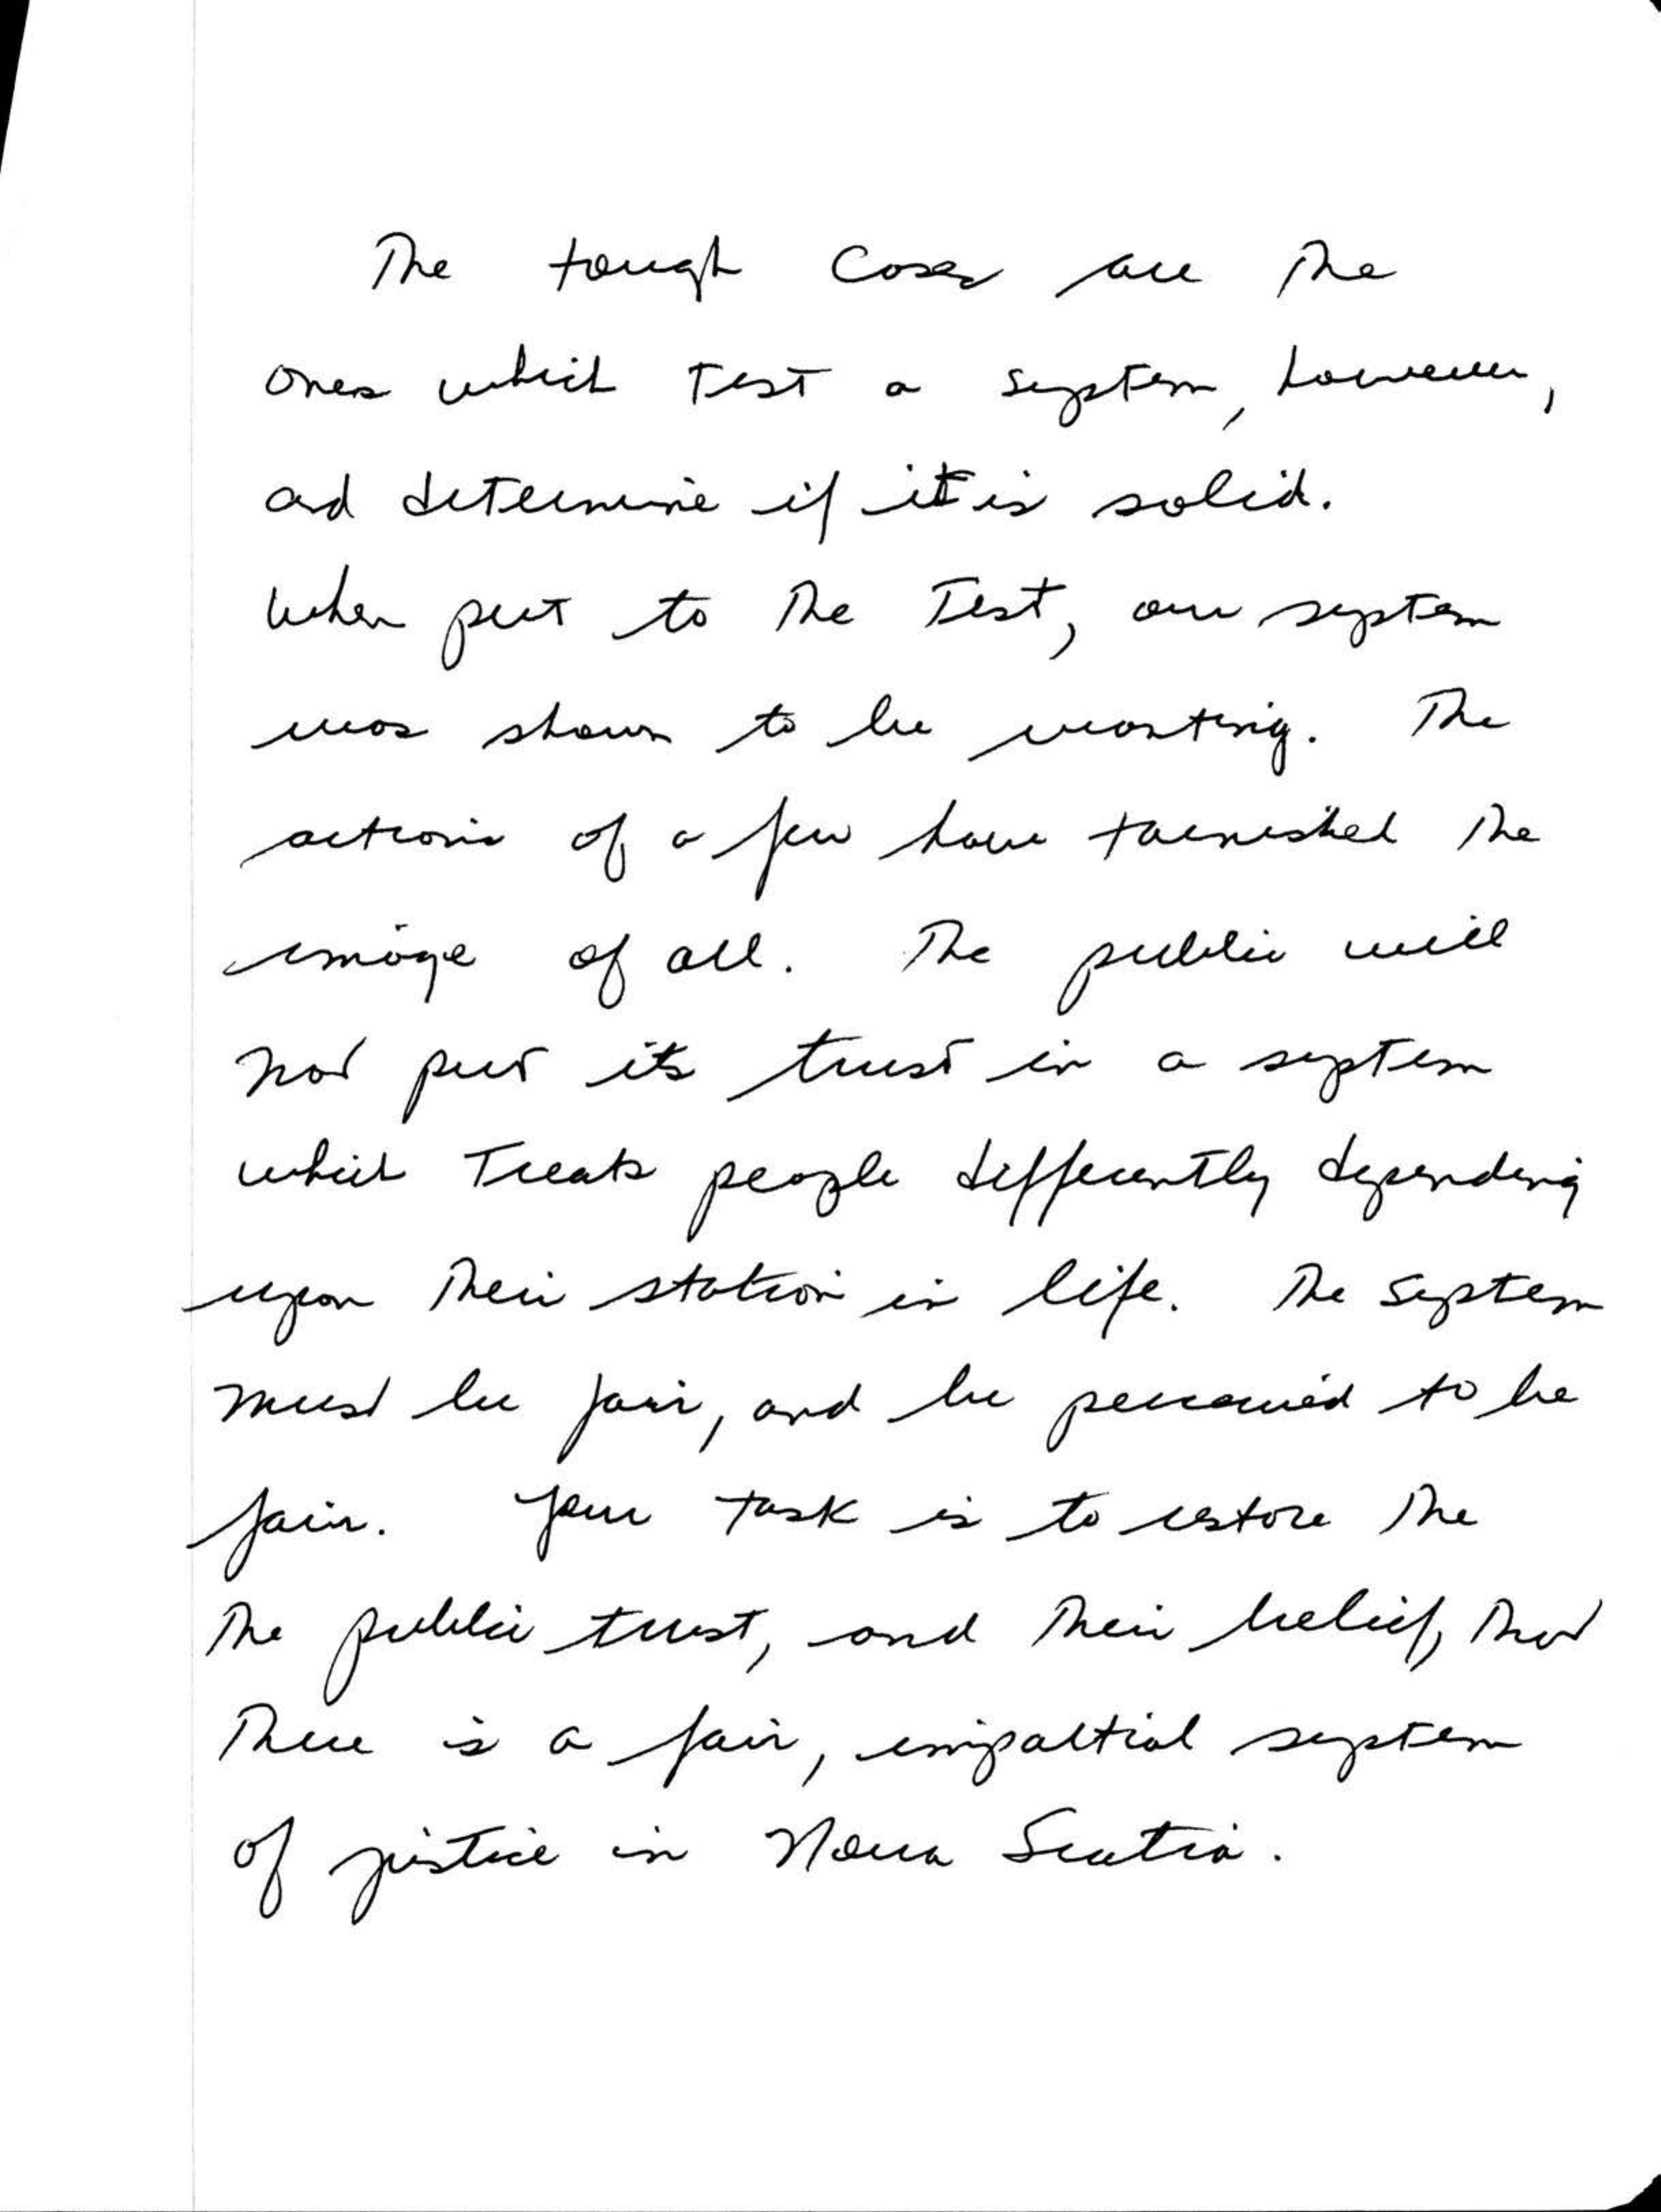 The tough cases are the
ones which test a system, however,
and determine if it is solid.
When put to the Test, our system
was shown to be wanting. The
actions of a few have tarnished the
image of all. The public will
not put its trust in a system
which Treats people differently depending
upon their station in life. The system
must be fair, and be perceived to be
fair. Your task is to restore the
the public trust, and their belief, that
there is a fair, impartial system
of justice in Nova Scotia.